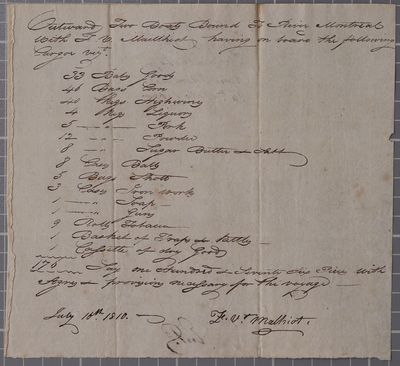 Outward Two Boats Bound to from Montreal
with F. V. Malhiot having on board the following
Cargoe viz.
33 Bales Goods
46 Bags Corn
40 Kegs Highwine
4 Kegs Liquor
5 — " — Pork
12 — " — Powder
8 — " — Sugar Butter & Salt
8 Balls
5 Bags Shott
3 Cases Iron work
1 — " — Soap
1 — " — Guns
9 Rolls Tobacco
1 Basket of Traps & Kettles
1 Cassette of dry Goods
176 Say one Hundred & Seventy Six Pieces with
Agrès & provision necessary for the voyage
July 15th 1810. F. Vr. Malhiot.